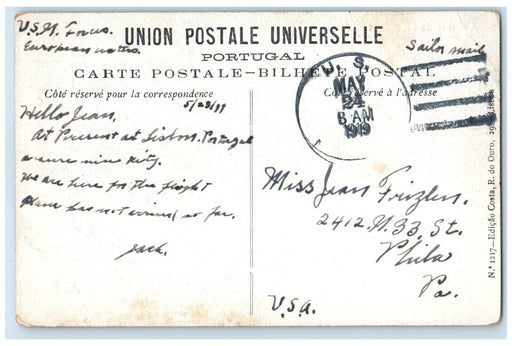 U.S.N. Forces
European waters.
Sailor mail
UNION POSTALE UNIVERSELLE
PORTUGAL
CARTE POSTALE–BILHETE POSTAL
Côté réservé pour la correspondence
Côté réservé à l'adresse
U. S.
MAY
24
8 AM
1919
5/23/19
Hello Jean,
At Present at Lisbon. Portugal
a nice city.
We are here for the flight
plane has not arrived so far.
Jack.
Miss Jean Frizlen.
2412. N. 33, St.
Phila
Pa.
U.S.A.
N.º 1217—Edição Costa, R. do Ouro, Lisboa